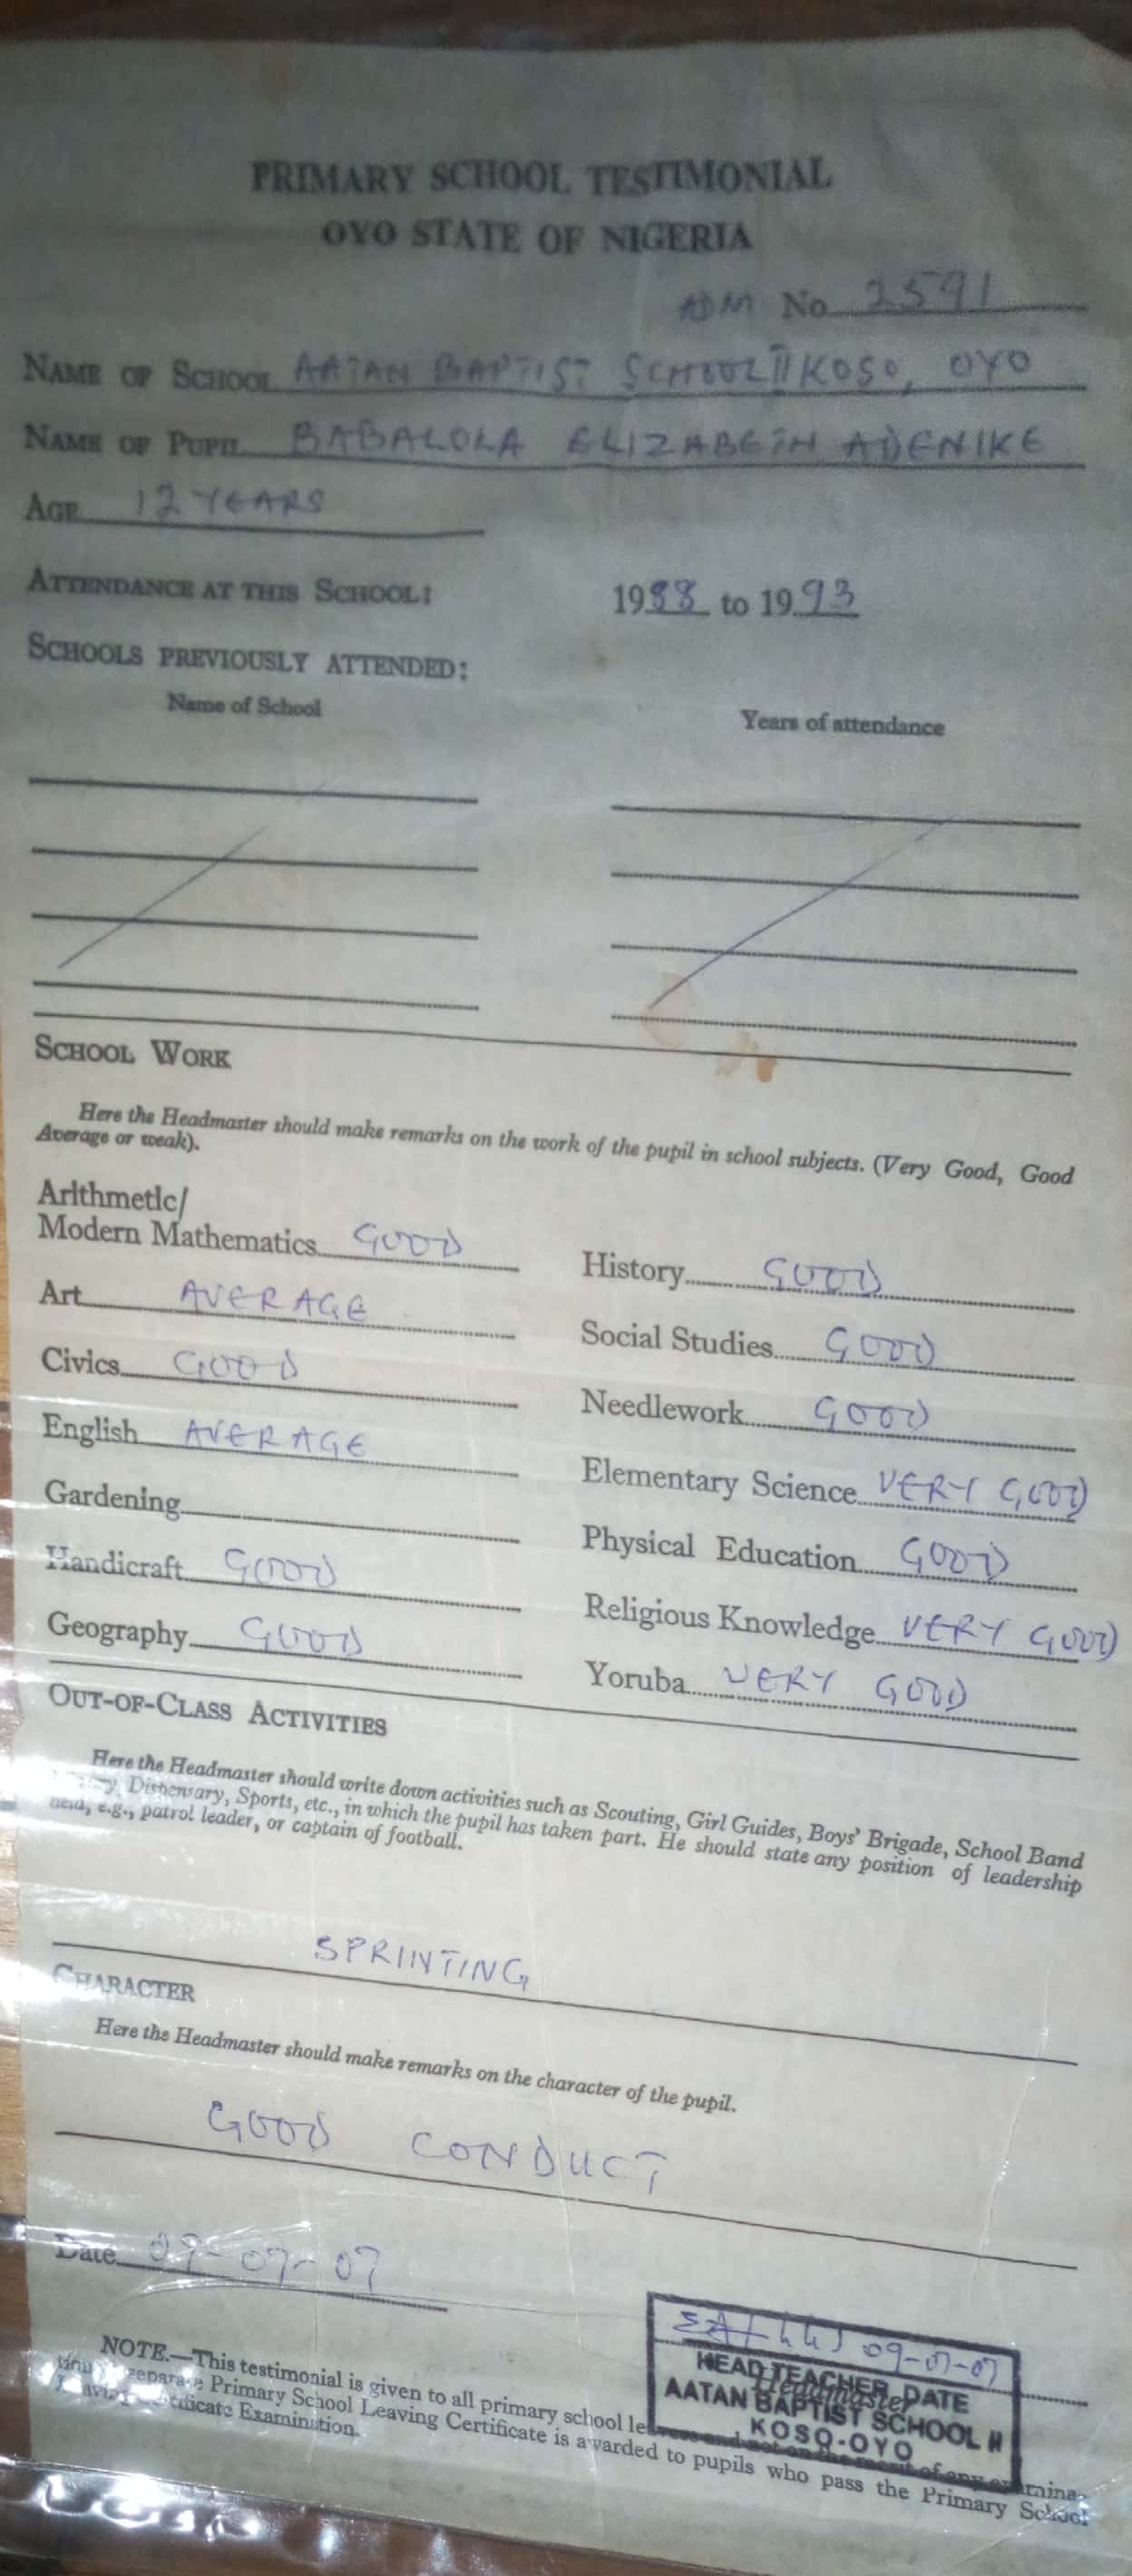 PRIMARY SCHOOL TESTIMONIAL
OYO STATE OF NIGERIA
ADM No 2591
NAME OF SCHOOL AATAN BAPTIST SCHOOL II KOSO, OYO
NAME OF PUPIL BABALOLA ELIZABETH ADENIKE
AGE 12 YEARS
ATTENDANCE AT THIS SCHOOL: 1988 to 1993
SCHOOLS PREVIOUSLY ATTENDED:
Name of School Years of attendance
SCHOOL WORK
Here the Headmaster should make remarks on the work of the pupil in school subjects. (Very Good, Good
Average or weak).
Arithmetic/
Modern Mathematics GOOD
History GOOD
Art AVERAGE
Social Studies GOOD
Civics GOOD
Needlework GOOD
English AVERAGE
Elementary Science VERY GOOD
Gardening
Physical Education GOOD
Handicraft GOOD
Religious Knowledge VERY GOOD
Geography GOOD
Yoruba VERY GOOD
OUT-OF-CLASS ACTIVITIES
Here the Headmaster should write down activities such as Scouting, Girl Guides, Boys' Brigade, School Band
Dispensary, Sports, etc., in which the pupil has taken part. He should state any position of leadership
held, e.g., patrol leader, or captain of football.
SPRINTING
CHARACTER
Here the Headmaster should make remarks on the character of the pupil.
GOOD CONDUCT
Date 09-07-07
09-07-07
HEAD TEACHER DATE
Headmaster
AATAN BAPTIST SCHOOL II
KOSO-OYO
NOTE.—This testimonial is given to all primary school leavers and not on the merit of any examina-
tion. separate Primary School Leaving Certificate is awarded to pupils who pass the Primary School
Leaving Certificate Examination.